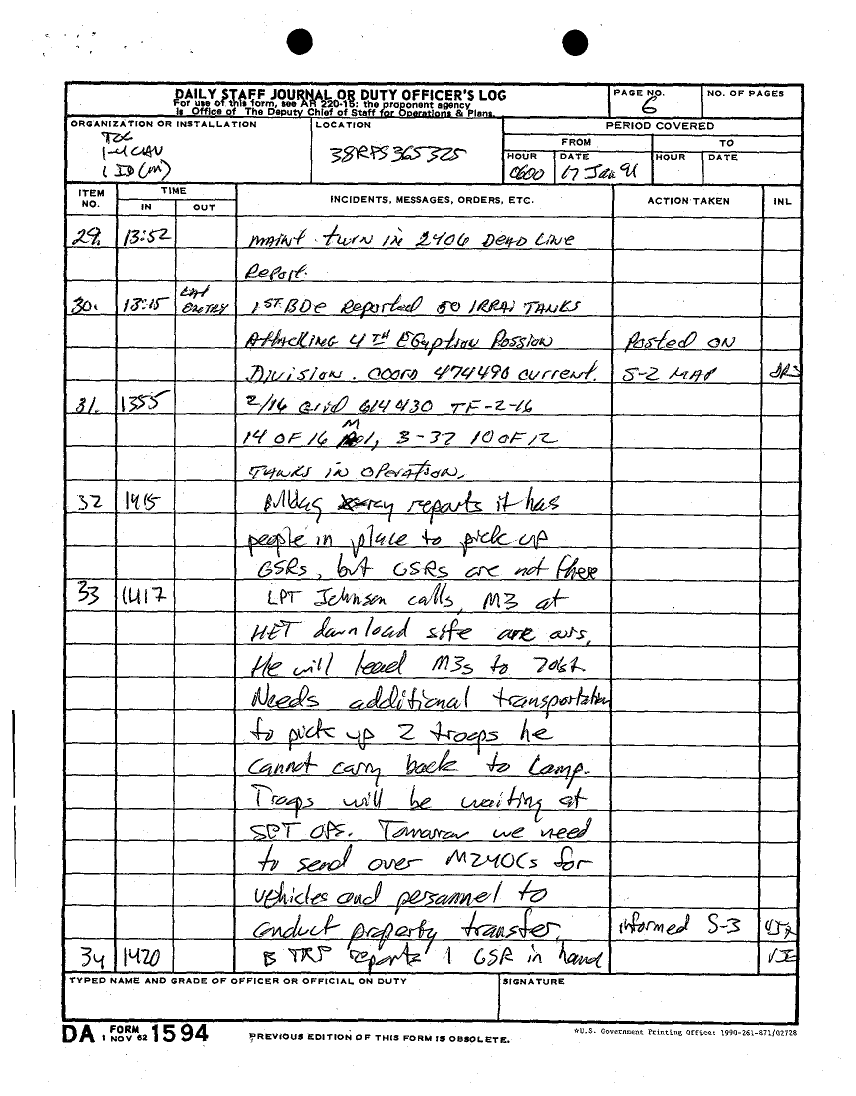 DAILY STAFF JOURNAL OR DUTY OFFICER'S LOG
For use of this form, see AR 220-15; the proponent agency
is Office of The Deputy Chief of Staff for Operations & Plans.
PAGE NO.
6
NO. OF PAGES
ORGANIZATION OR INSTALLATION
TOC
1-4 CAV
1 ID (M)
LOCATION
38RPS365325
PERIOD COVERED
FROM
TO
HOUR
0600
DATE
17 Jan 91
HOUR
DATE
ITEM NO.
TIME
IN
OUT
INCIDENTS, MESSAGES, ORDERS, ETC.
ACTION TAKEN
INL
29. 13:52 MAINT turn in 2406 Dead Line
Report.
30. 13:15 1ST BDe Reported 50 IRRAI TANKS
Attacking 4TH EGyption Possion Posted ON
Division. COORD 474490 current. S-2 MAP
31. 1355 2/16 Grid 614430 TF-2-16
14 OF 16 M1, 3-37 10 OF 12
TANKS IN OPERATION.
32 1415 Bulldog reports it has
people in place to pick up
GSRs, but GSRs are not there
33 1417 LPT Johnson calls, M3 at
HET download site are ours,
He will lead M3s to
Needs additional transportation
to pick up 2 troops he
cannot carry back to Camp.
Troops will be waiting at
SPT OPS. Tomorrow we need
to send over M240Cs for
vehicles and personnel to
conduct property transfer. informed S-3
34 1420 B TRP reports 1 GSR in hand
TYPED NAME AND GRADE OF OFFICER OR OFFICIAL ON DUTY
SIGNATURE
DA FORM 1594
1 NOV 62
PREVIOUS EDITION OF THIS FORM IS OBSOLETE.
*U.S. Government Printing Office: 1990-261-871/02728